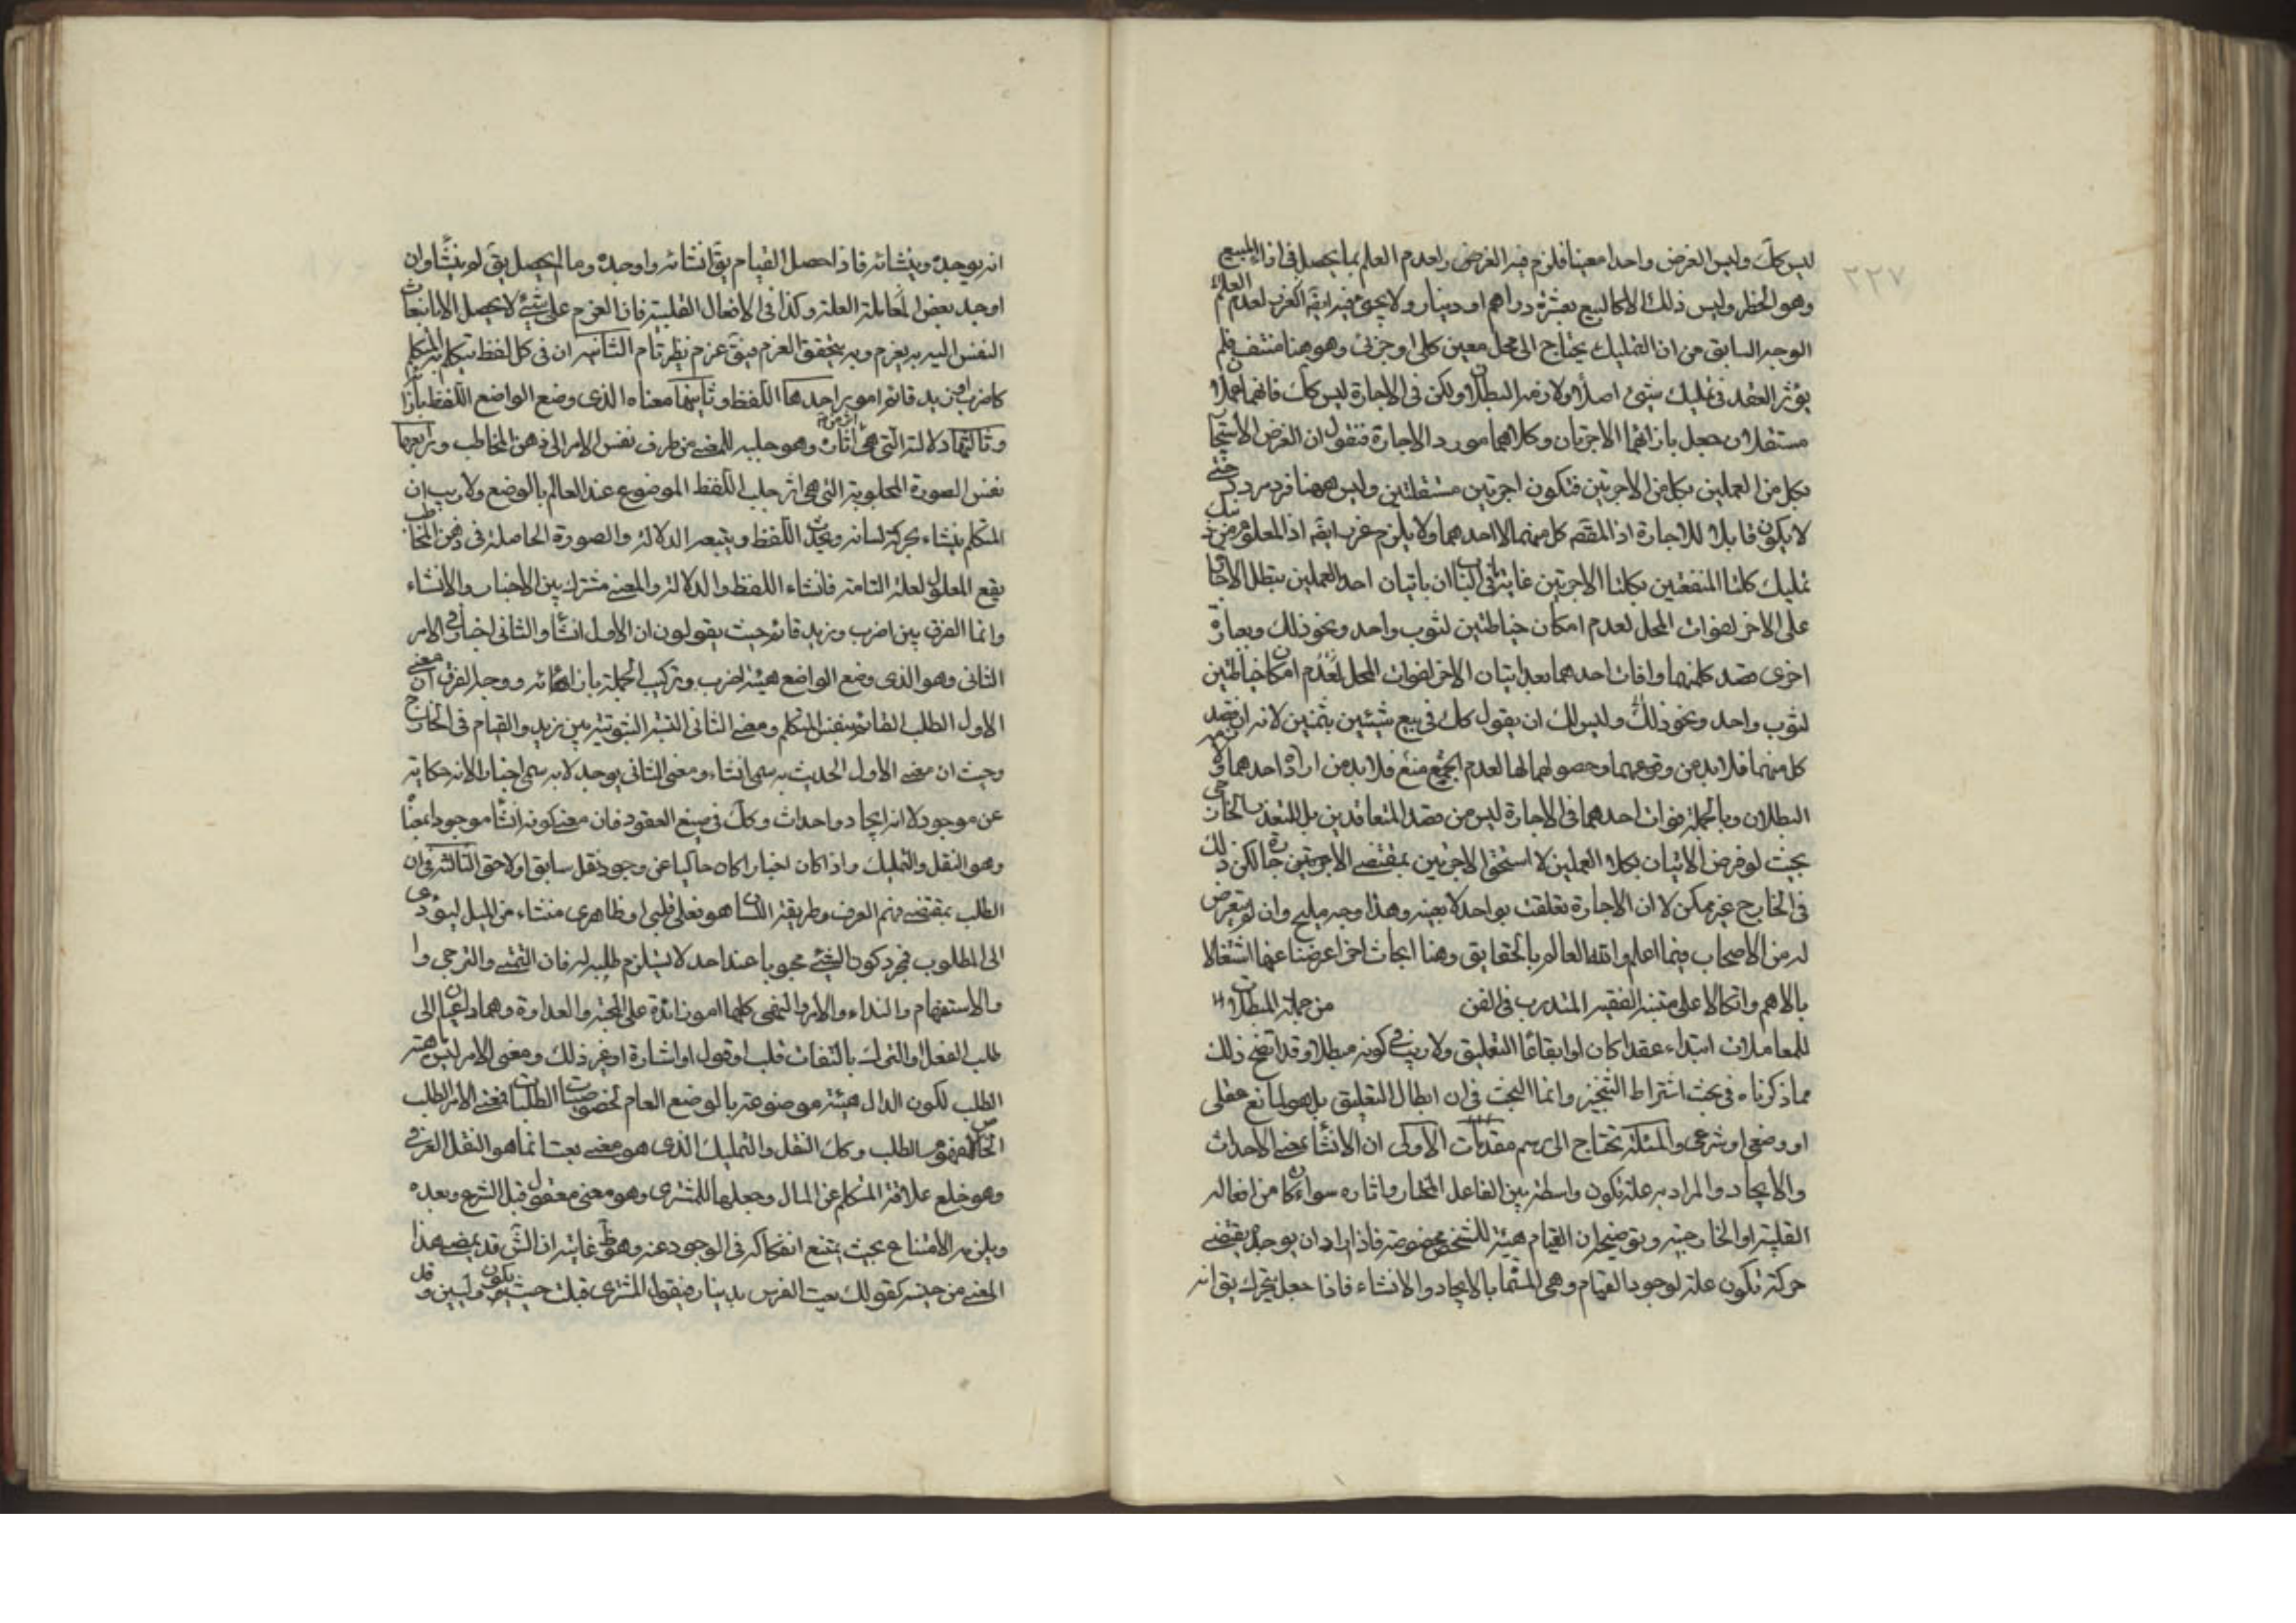 ٢٢٧
ليس كك وليس الغرض واحدا معينا فلزم فيه الغرض ولعدم العلم بما يحصل في ازاء المبيع
وهو الخطر وليس ذلك الا كالبيع بعشرة دراهم او دينار ولا يجئ فيه ايضا الغرر لعدم العلم
الوجه السابق من ان التمليك يحتاج الى محل معين كلى او جزئى وهو هنا منتف فلم
يؤثر العقد في تمليك شئ اصلا ولازمه البطلان ولكن فى الاجارة ليس كك فانهما عملان
مستقلان جعل بازائهما الاجرتان وكلاهما مورد الاجارة فنقول ان الغرض الاستيجار
بكل من العملين بكل من الاجرتين فتكون اجرتين مستقلتين وليس ههنا فرد مردد حتى
لا يكون قابلا للاجارة اذ المقصد كل منهما لا احدهما ولا يلزم غرر ايضا اذ المعلوم من
تمليك كلتا المنفعتين بكلتا الاجرتين غايته فى الباب ان باتيان احد العملين يبطل الاجارة
على الاخر لفوات المحل لعدم امكان خياطتين لثوب واحد ونحو ذلك وبعبارة
اخرى قصد كلتيهما وافات احدهما بعد اتيان الاخر لفوات المحل لعدم امكان خياطتين
لثوب واحد ونحو ذلك وليس لك ان يقول كك في بيع شيئين بثمنين لانه ان قصد
كل منهما فلا بد من وقوعهما وحصولهما لها لعدم الجمع منع فلا بد من ارادة احدهما ولازمه
البطلان وبالجملة فوات احدهما فى الاجارة ليس من قصد المتعاقدين بل للتعذر الخارجى
بحيث لو فرض الاتيان بكلا العملين لاستحق الاجرتين بمقتضى الاجرتين لكن ذلك
فى الخارج غير ممكن لا ان الاجارة تعلقت بواحد لا بعينه وهذا وجه مليح وان لم يتعرض
له من الاصحاب فيما اعلم والله العالم بالحقايق وهنا ابحاث اخر اعرضنا عنها اشتغالا
بالاهم واتكالا على متنبه الفقيه المتدرب فى الفن من جملة المبطلات
للمعاملات ابتداء عقدا كان او ايقاعا التعليق ولا ريب فى كونه مبطلا وقد اتضح ذلك
مما ذكرناه فى بحث اشتراط التنجيز وانما البحث فى ان ابطال التعليق بل هو لمانع عقلى
او وضعى او شرعى والمسئلة تحتاج الى رسم مقدمات الاولى ان الانشاء بمعنى الاحداث
والايجاد والمراد به علة تكون واسطة بين الفاعل المختار واثاره سواء كان من افعاله
القلبية او الخارجية وتوضيحه ان القيام هيئة للشخص مخصوصة فاذا اراد ان يوجده يقتضى
حركة تكون علة لوجود القيام وهى المسماة بالايجاد والانشاء فاذا جعل يتحرك يق انه
انه يوجده وينشائه فاذا حصل القيام يق انشائه واوجده وما لم يحصل يق لم ينشا وان
اوجد بعض العلة وكذا فى الافعال القلبية فان العزم على شئ لا يحصل الا بانبعاث
النفس اليه به يعزم وبه يتحقق العزم فيق عزم نظير قام الثانيه ان فى كل لفظ يتكلم به المتكلم
كاضرب او زيد قائم امور احدها اللفظ وثانيها معناه الذى وضع الواضع اللفظ بازائه
وثالثها دلالته التى هى اثاره وهو جلبه للمعنى من طرف نفس الامر الى ذهن المخاطب ورابعها
نفس الصورة المجلوبة التى هى اثر جلب اللفظ الموضوع عند العالم بالوضع ولا ريب ان
المتكلم ينشاء بحركة لسانه ويحدث اللفظ ويتبعه الدلالة والصورة الحاصلة فى ذهن المخاطب
يقع المعلول لعلته التامة فانشاء اللفظ والدلالة والمعنى مشترك بين الاخبار والانشاء
وانما الفرق بين اضرب وزيد قائم حيث يقولون ان الاول انشاء والثانى اخبار فى الامر
الثانى وهو الذى وضع الواضع هيئة اضرب وتركيب الجملة بازائه ووجه الفرق ان معنى
الاول الطلب القائم بنفس المتكلم ومعنى الثانى النسبة الثبوتية بين زيد والقيام فى الخارج
وحيث ان معنى الاول الحديث به سمى انشاء ومعنى الثانى يوجد لا به سمى اخبارا لانه حكاية
عن موجود لا انه ايجاد واحداث وكك فى صيغ العقود فان معنى كونه انشاء موجود بمعناه
وهو النقل والتمليك واذا كان اخبارا كان حاكيا عن وجود نقل سابق او لاحق الثالثه ان
الطلب بمقتضى فهم العرف وطريقة اللسان هو فعلى قلبى او ظاهرى منشاء من الميل ليؤدى
الى المطلوب فمجرد كون الشئ محبوبا عند احد لا يستلزم طلبه له فان التمنى والترجى وا
والاستفهام والنداء والامر والنهى كلها امور زائدة على المحبة والعداوة وهما داعيان الى
طلب الفعل او الترك بالتفات قلب او قول او اشارة او غير ذلك ومعنى الامر ليس مهية
الطلب لكون الدال هيئة موضوعة بالوضع العام لخصوصيات الطلبات فمعنى الامر الطلب
الخاص لا مفهوم الطلب وكك النقل والتمليك الذى هو معنى بعت انما هو النقل العرفى
وهو خلع علاقة المتكلم عن المال وجعلها للمشترى وهو معنى معقول قبل الشرع وبعده
ويلزمه الامتناع بحيث يمتنع انفكاكه فى الوجود عنه وهو ظ غايته ان الش قد يمضى هذا
المعنى من حينه كقولك بعت الفرس بدينار فيقول المشترى قبلت حيث يكون وليين وقد